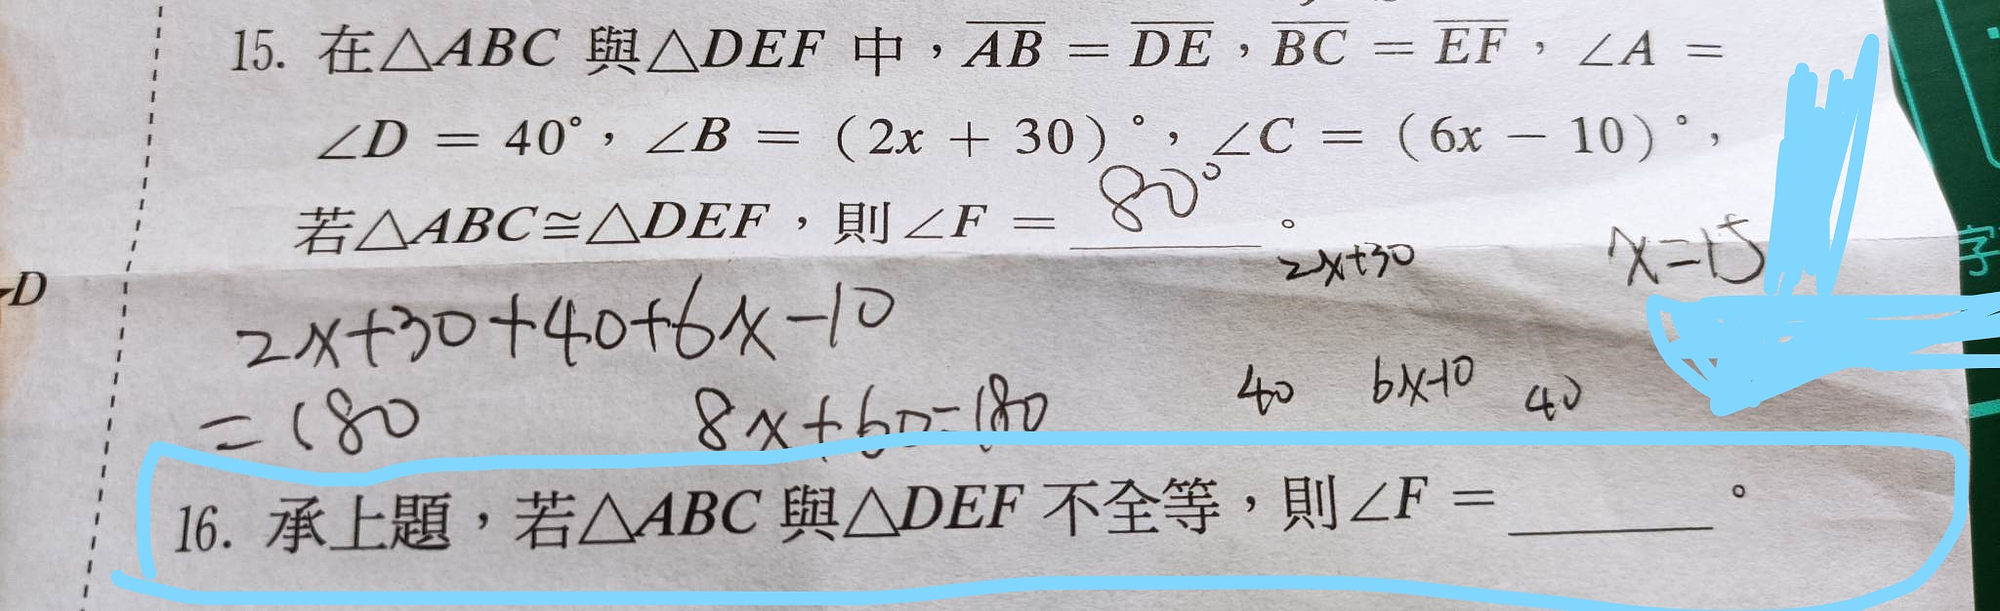 15. 在△ABC 與△DEF 中，AB = DE，BC = EF，∠A =
∠D = 40°，∠B = (2x + 30)°，∠C = (6x − 10)°，
若△ABC≅△DEF，則∠F = 80° °
2x+30
x=15
D
2x+30+40+6x-10
= 180
8x+60=180
40
6x-10
40
16. 承上題，若△ABC 與△DEF 不全等，則∠F = ______°
字